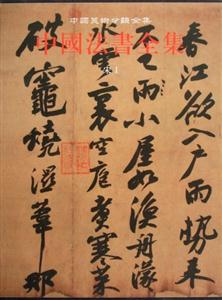 中國美術分類全集
中國法書全集
宋1
春江欲入户雨勢来
不已雨小屋如漁舟濛
水雲裏空庖煮寒菜
破竈燒濕葦那